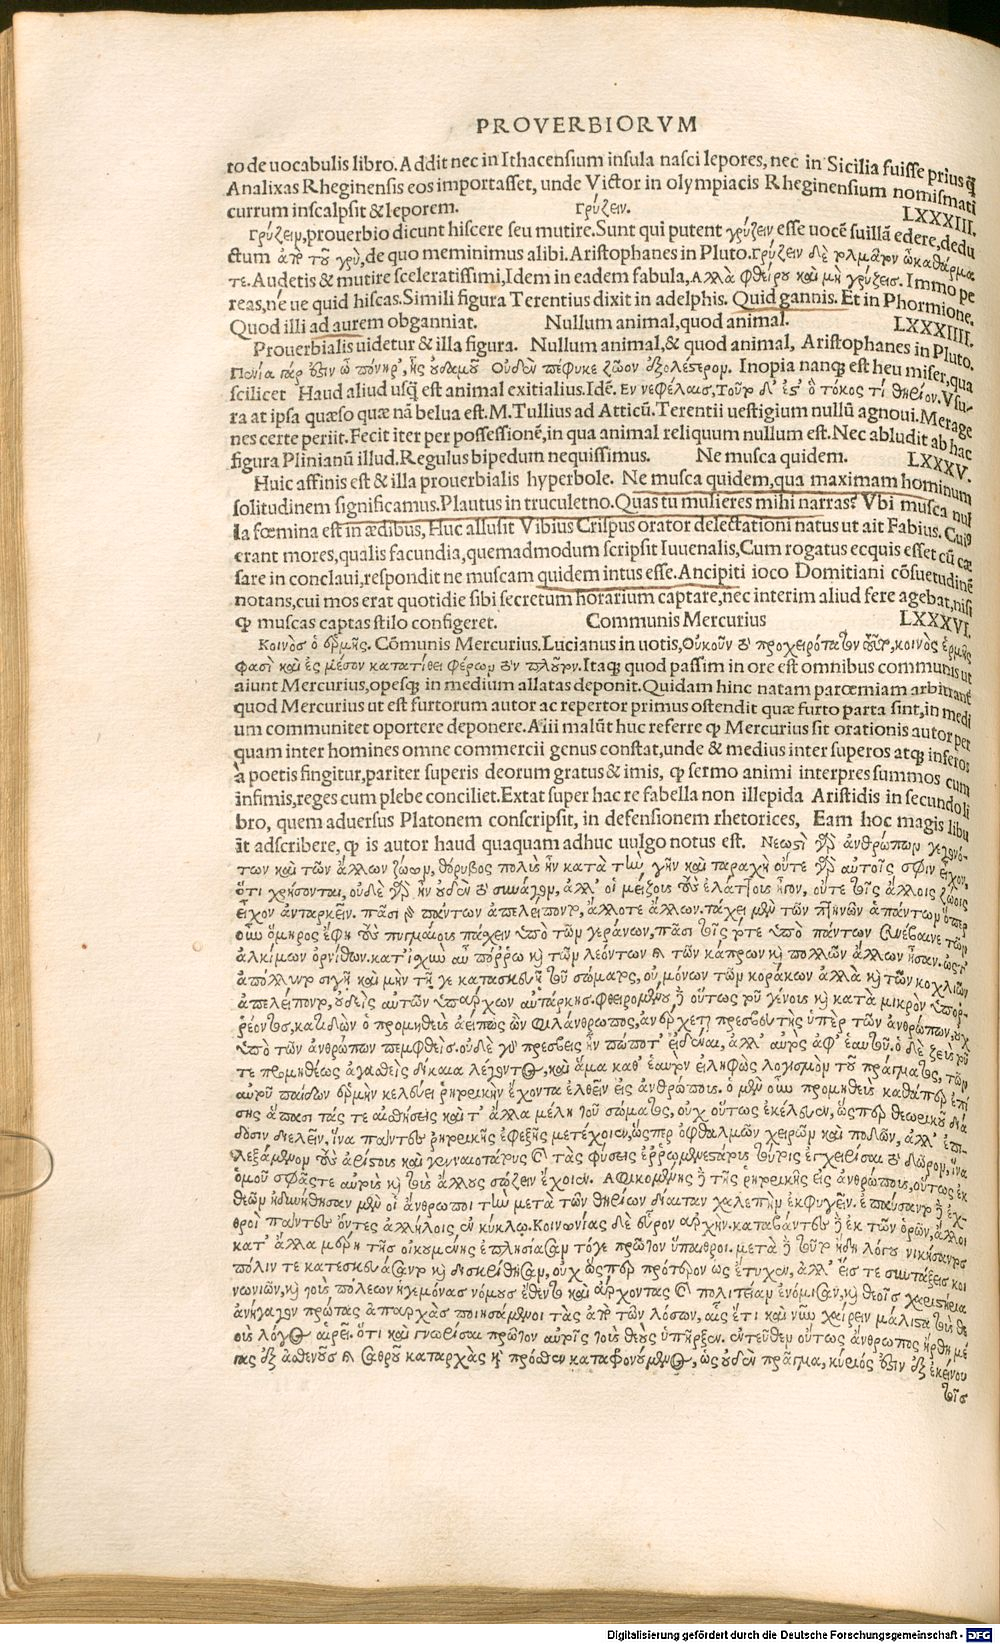 PROVERBIORVM
to de uocabulis libro. Addit nec in Ithacensium insula nasci lepores, nec in Sicilia fuisse prius q̃
Analixas Rheginensis eos importasset, unde Victor in olympiacis Rheginensium nomismati
currum inscalpsit & leporem. γρύζειν. LXXXIII.
γρύζειν, prouerbio dicunt hiscere seu mutire. Sunt qui putent γρύζειν esse uocẽ suillã edere, dedu
ctum ἀπὸ τοῦ γρὺ, de quo meminimus alibi. Aristophanes in Pluto. γρύζειν δὲ καθάρμα
τε. Audetis & mutire sceleratissimi, Idem in eadem fabula, Αλλὰ φθείρου καὶ μὴ γρύζεισ. Immo pe
reas, ne ue quid hiscas. Simili figura Terentius dixit in adelphis. Quid gannis. Et in Phormione.
Quod illi ad aurem obganniat. Nullum animal, quod animal. LXXXIIII.
Prouerbialis uidetur & illa figura. Nullum animal, & quod animal, Aristophanes in Pluto.
Πενία γάρ ὅστιν ὦ πόνηρ', ἧς οὐδαμοῦ Οὐδὲν πέφυκε ζῶον ἐξολέστερον. Inopia nanq; est heu miser, qua
scilicet Haud aliud usq̃ est animal exitialius. Idẽ. Εν νεφέλαισ, Τοῦτο δ' ἔσθ' ὁ τόκος τί θηρίον. Vsu,
ra at ipsa quæso quæ nã belua est. M. Tullius ad Atticũ. Terentii uestigium nullũ agnoui. Merage
nes certe periit. Fecit iter per possessionẽ, in qua animal reliquum nullum est. Nec abludit ab hac
figura Plinianũ illud. Regulus bipedum nequissimus. Ne musca quidem. LXXXV.
Huic affinis est & illa prouerbialis hyperbole. Ne musca quidem, qua maximam hominum
solitudinem significamus. Plautus in truculetno. Quas tu mulieres mihi narras? Vbi musca nul
la fœmina est in ædibus, Huc allusit Vibius Crispus orator delectationi natus ut ait Fabius. Cui9
erant mores, qualis facundia, quemadmodum scripsit Iuuenalis, Cum rogatus ecquis esset cũ cæ
sare in conclaui, respondit ne muscam quidem intus esse. Ancipiti ioco Domitiani cõsuetudinẽ
notans, cui mos erat quotidie sibi secretum horarium captare, nec interim aliud fere agebat, nisi
ꝙ muscas captas stilo configeret. Communis Mercurius LXXXVI.
Κοινὸσ ὁ ἑρμῆς. Cõmunis Mercurius. Lucianus in uotis, Οὐκοῦν προχειρότατον κοινὸς ἑρμῆς
φασὶ καὶ ἐς μέσον κατατίθει φέρων τὸν πλοῦτον. Itaq; quod passim in ore est omnibus communis ut
aiunt Mercurius, opesq; in medium allatas deponit. Quidam hinc natam parœmiam arbitrant̃
quod Mercurius ut est furtorum autor ac repertor primus ostendit quæ furto parta sint, in medi
um communitet oportere deponere. Alii malũt huc referre ꝙ Mercurius sit orationis autor per
quam inter homines omne commercii genus constat, unde & medius inter superos atq; inferos
à poetis fingitur, pariter superis deorum gratus & imis, ꝙ sermo animi interpres summos cum
infimis, reges cum plebe conciliet. Extat super hac re fabella non illepida Aristidis in secundo li
bro, quem aduersus Platonem conscripsit, in defensionem rhetorices, Eam hoc magis libu
it adscribere, ꝙ is autor haud quaquam adhuc uulgo notus est. Νεωστὶ τῶν ἀνθρώπων γεγονό-
των καὶ τῶν ἄλλων ζώων, θόρυβος πολὺς ἦν κατὰ τὴν γῆν καὶ ταραχὴ οὔτε γὰρ αὐτοῖς σφιν εἶχον,
ὅτι χρήσονται, οὐδὲ γὰρ ἦν οὐδὲν τὸ συνάγον, ἀλλ' οἱ μείζους τοὺς ἐλάττους ἦγον, οὔτε τοῖς ἄλλοις ζώοις
εἶχον ἀνταρκεῖν. πᾶσι γὰρ πάντων ἀπελείποντο, ἄλλοτε ἄλλων. τάχει μὲν τῶν πτηνῶν ἁπάντων ὅπερ
οὖν ὅμηρος ἔφη τοὺς πυγμαίους πάσχειν ὑπὸ τῶν γεράνων, πᾶσι τοῖς τότε ὑπὸ πάντων συνέβαινε τῶν
ἀλκίμων ὀρνίθων. κατ' ἰσχὺν αὖ πόρρω καὶ τῶν λεόντων καὶ τῶν κάπρων καὶ πολλῶν ἄλλων ἦσαν. ὥστ'
ἀπώλλυντο σιγῇ καὶ μὴν τῇ γε κατασκευῇ τοῦ σώματος, οὐ μόνων τῶν κοράκων ἀλλὰ καὶ τῶν κοχλιῶν
ἀπελείποντο, οὐδεὶς αὐτῶν ὑπάρχων αὐτάρκησ. φθειρομένου δὲ οὕτως τοῦ γένους καὶ κατὰ μικρὸν ὑπορ-
ρέοντος, κατιδὼν ὁ προμηθεὺς ἀεί πως ὢν φιλάνθρωπος, ἀνέρχεται πρεσβευτὴς ὑπὲρ τῶν ἀνθρώπων, οὐχ
ὑπὸ τῶν ἀνθρώπων πεμφθείς. οὐδὲ γὰρ πρέσβεις ἦν πώποτ' εἰδέναι, ἀλλ' αὐτὸς ἀφ' ἑαυτοῦ. ὁ δὲ ζεὺς τοῦ
τε προμηθέως ἀγασθεὶς δίκαια λέγοντος, καὶ ἅμα καθ' ἑαυτὸν εἰληφὼς λογισμὸν τοῦ πράγματος, τῶν
αὑτοῦ παίδων ἑρμῆν κελεύει ῥητορικὴν ἔχοντα ἐλθεῖν εἰς ἀνθρώπους. ὁ μὲν οὖν προμηθεὺς καθάπερ ἐπί
σης ἅπασι τάς τε αἰσθήσεις καὶ τ' ἄλλα μέλη τοῦ σώματος, οὐχ οὕτως ἐκέλευεν, ὥσπερ θεωρικοῦ διά
δοσιν διελεῖν, ἵνα πάντες ῥητορικῆς ἐφεξῆς μετέχοιεν, ὥσπερ ὀφθαλμῶν χειρῶν καὶ ποδῶν, ἀλλ' ἐπι-
λεξάμενον τοὺς ἀρίστους καὶ γενναιοτάτους καὶ τὰς φύσεις ἐρρωμενεστάτους τούτοις ἐγχειρίσαι τὸ δῶρον, ἵνα
ὁμοῦ σφᾶς τε αὐτοὺς καὶ τοὺς ἄλλους σώζειν ἔχοιεν. Αφικομένης δὲ τῆς ῥητορικῆς εἰς ἀνθρώπους, οὕτως ἐκ
θεῶν ἠδυνήθησαν μὲν οἱ ἄνθρωποι τὴν μετὰ τῶν θηρίων δίαιταν χαλεπὴν ἐκφυγεῖν. ἐπαύσαντο δὲ ἐχ-
θροὶ πάντες ὄντες ἀλλήλοις ἐν κύκλῳ. Κοινωνίας δὲ εὗρον ἀρχὴν. καταβάντες δὲ ἐκ τῶν ὀρῶν, ἄλλοι
κατ' ἄλλα μέρη τῆς οἰκουμένης ἐπλησίασαν τόγε πρῶτον ὕπαιθροι. μετὰ δὲ τοῦτο ἤδη λόγου νικήσαντος
πόλιν τε κατεσκευάσαντο καὶ διεκρίθησαν, οὐχ ὥσπερ πρότερον ὡς ἔτυχεν, ἀλλ' εἴς τε συντάξεις κοι
νωνιῶν, καὶ τοὺς πόλεων ἡγεμόνας νόμους ἔθεντο καὶ ἄρχοντας καὶ πολιτείαν ἐνόμισαν, καὶ θεοῖς χαριστήρια
ἀνήγαγον πρώτας ἀπαρχὰσ ποιησάμενοι τὰς ἀπὸ τῶν λόγων, αἷς ἔτι καὶ νῦν χαίρειν μάλιστα τοὺς θε
οὺς λόγος αἱρεῖ. ὅτι καὶ γνωρίσαι πρῶτον αὐτοῖς τοὺς θεοὺς ὑπῆρξεν. ἐντεῦθεν οὕτως ἄνθρωπος ἤρθη μέ
γας ἐξ ἀσθενοῦς καὶ σαθροῦ καταρχὰς καὶ πρόσθεν καταφρονούμενος, ὡς οὐδὲν πρᾶγμα, κύριός ἐστιν ἐξ ἐκείνου
τοῖσ
Digitalisierung gefördert durch die Deutsche Forschungsgemeinschaft - DFG